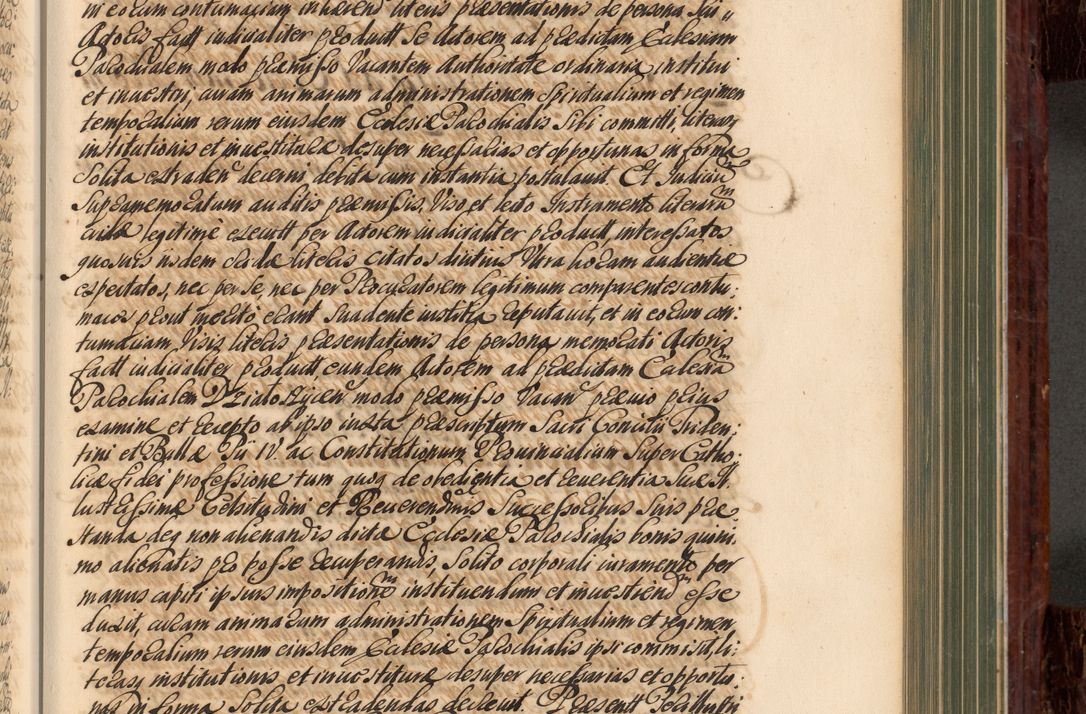 in eorum contumaciam inhaerens literis praesentationis de persona Sui
Actoris fact iudicialiter product Se Actorem ad praedictam Ecclesiam
Parochialem modo praemisso Vacantem Authoritate ordinaria institui
et inuestiri, curam animarum administrationem Spiritualium et regimen
temporalium rerum eiusdem Ecclesiae Parochialis Sibi committi, literas
institutionis et inuestiturae desuper necessarias et opportunas in forma
Solita extraden decerni debita cum instantia postulauit. Et Iudicium
Supramemoratum auditis praemissis, Viso, et lecto Instrumento literarum
cridae legitime execut per Actorem iudicialiter product, interessatos
quosuis iisdem cridae literis citatos diutius Vltra horam audientiae
expectatos, nec per se, nec per Procuratorem legitimum comparentes contu:
maces prout merito erant Suadente iustitia reputauit, et in eorum con:
tumaciam Visis literis praesentationis de persona memorati Actoris
fact iudicialiter product eundem Actorem ad praedictam Ecclesiam
Parochialem Działoszycen modo praemisso Vacan praeuio prius
examine et recepto ab ipso iuxta praescriptum Sacri Concilii Triden:
tini et Bullae Pii IV. ac Constitutionum Prouincialium Super Catho:
licae fidei professione tum quoq de obedientia et reuerentia Suae Il
lustrissimae Celsitudini et Reuerendmis Successoribus Suis prae
standa deq non alienandis dictae Ecclesiae Parochialis bonis quini:
mo alienatis pro posse recuperandis Solito corporali iuramento per
manus capiti ipsius impositionem instituendum et inuestiendum esse
duxit, curam animarum administrationem Spiritualium et regimen
temporalium rerum eiusdem Ecclesiae Parochialis ipsi commisit, li:
teras institutionis et inuestiturae desuper necessarias et opportu:
nas in forma Solita extradendas decreuit. Praesent Perillustri